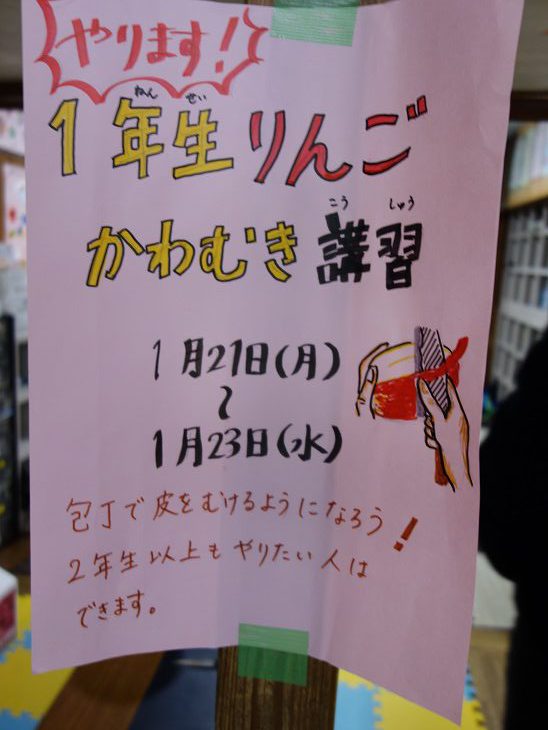 やります!
1年生りんご
ねん せい
かわむき講習
こう しゅう
1月21日(月)
〜
1月23日(水)
包丁で皮をむけるようになろう!
2年生以上もやりたい人は
できます。